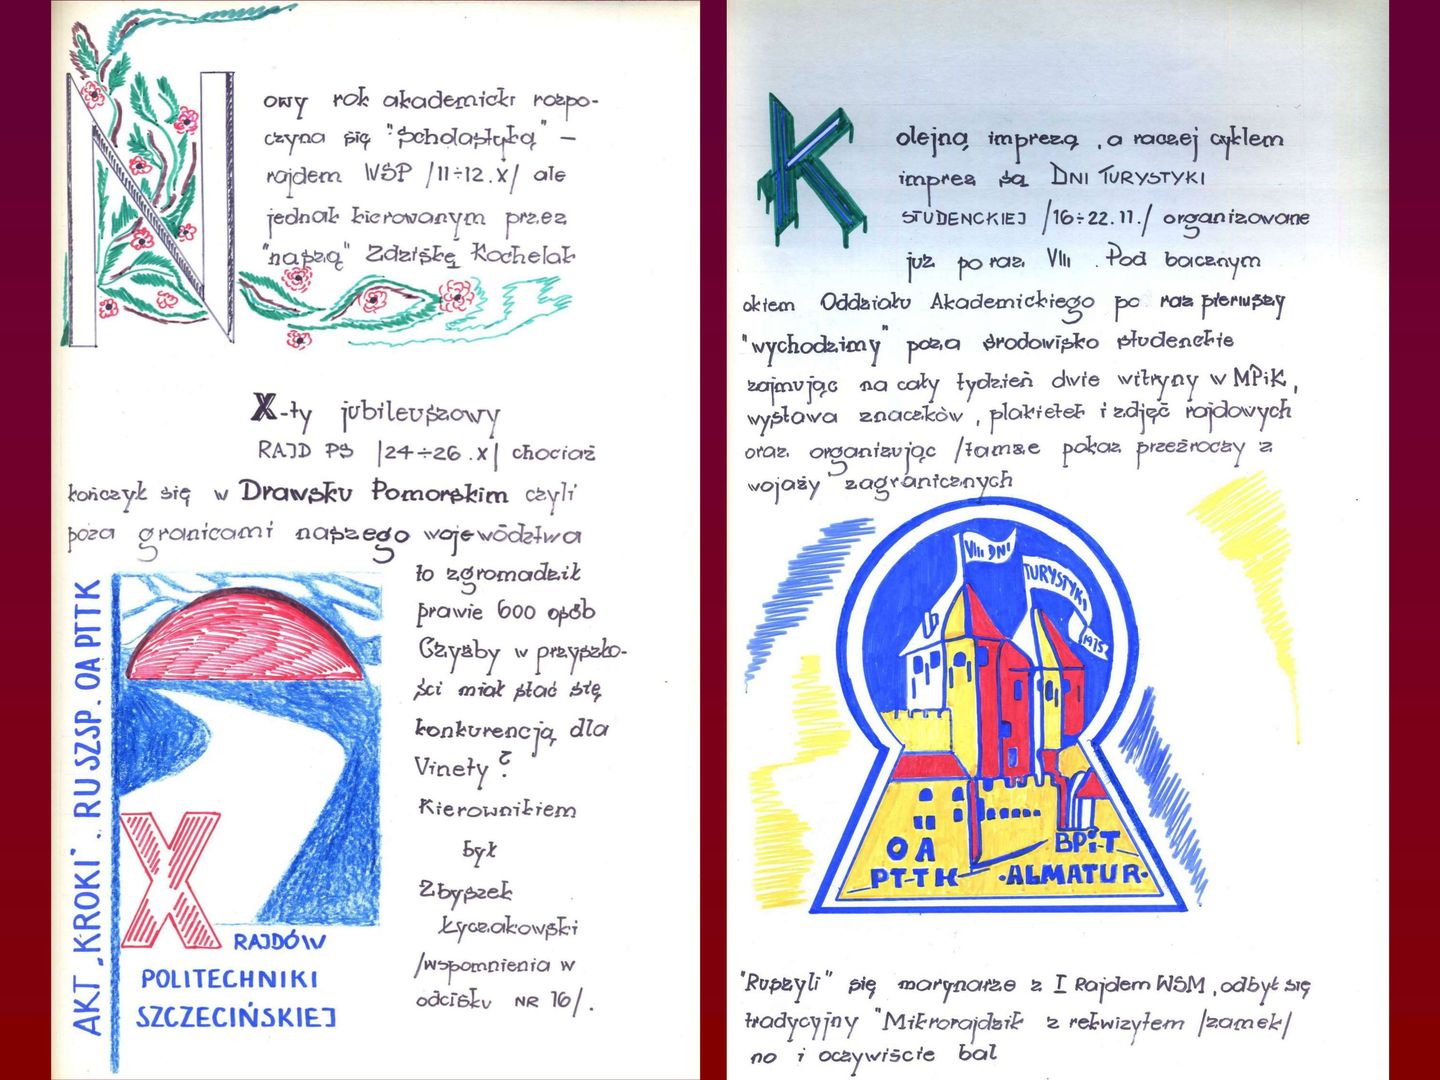 Nowy rok akademicki rozpo-
czyna się "Scholastyką" –
rajdem WSP /11÷12.X/ ale
jednak kierowanym przez
"naszą" Zdziśkę Kochelak
X-ty jubileuszowy
RAJD PS /24÷26.X/ chociaż
kończył się w Drawsku Pomorskim czyli
poza granicami naszego województwa
to zgromadził
prawie 600 osób
Czyżby w przyszło-
ści miał stać się
konkurencją dla
Vinety?
Kierownikiem
był
Zbyszek
Łyczakowski
/wspomnienia w
odcisku NR 16/.
AKT „KROKI". RU SZSP. OA PTTK
X RAJDÓW
POLITECHNIKI
SZCZECIŃSKIEJ
Kolejną imprezą, a raczej cyklem
imprez są DNI TURYSTYKI
STUDENCKIEJ /16÷22.11./ organizowane
już po raz VIII. Pod bacznym
okiem Oddziału Akademickiego po raz pierwszy
"wychodzimy" poza środowisko studenckie
zajmując na cały tydzień dwie witryny w MPiK,
wystawa znaczków, plakietek i zdjęć rajdowych
oraz organizując /tamże pokaz przeźroczy z
wojaży zagranicznych
VIII DNI
TURYSTYKI
1975
OA
PTTK
BPiT
·ALMATUR·
"Ruszyli" się marynarze z I Rajdem WSM, odbył się
tradycyjny "Mikrorajdzik z rekwizytem /zamek/
no i oczywiście bal